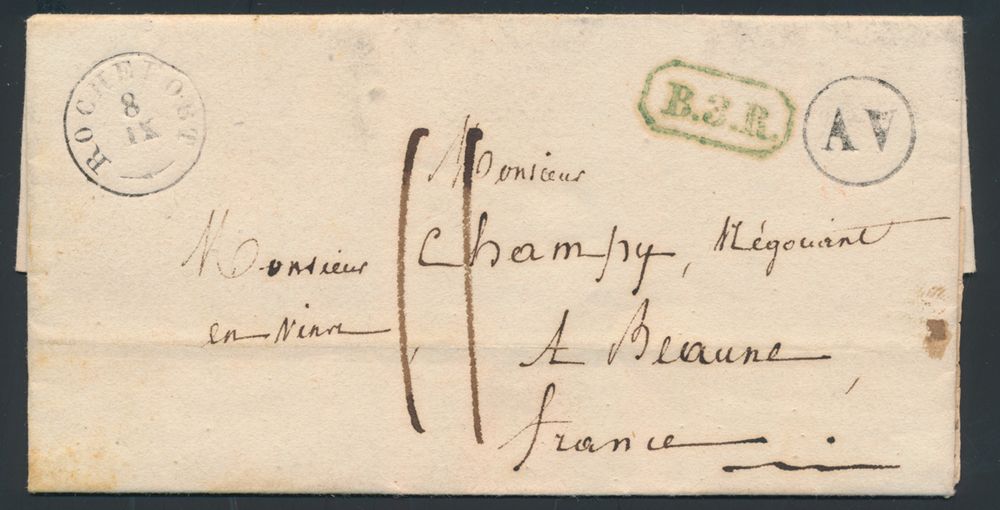 ROCHEFORT
8
IX
B.3.R.
AV
11
Monsieur
Monsieur Champy, Négociant
en vins
A Beaune
france